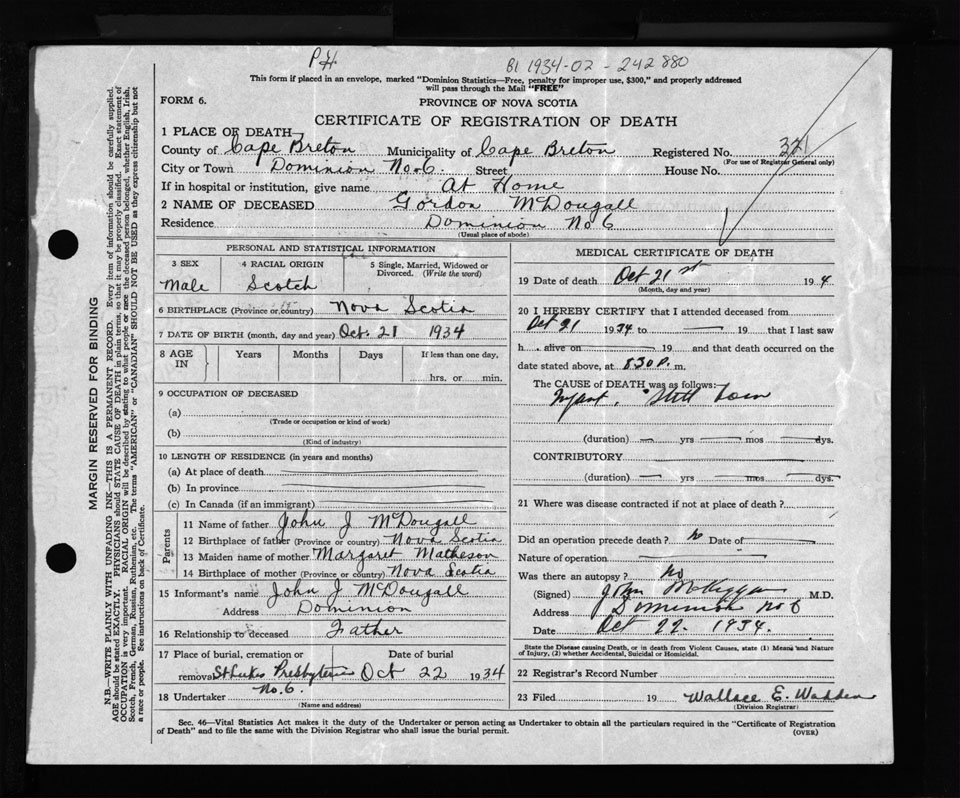 P.H.
B1 1934-02-242880
This form if placed in an envelope, marked "Dominion Statistics—Free, penalty for improper use, $300," and properly addressed
will pass through the Mail "FREE"
FORM 6.
PROVINCE OF NOVA SCOTIA
CERTIFICATE OF REGISTRATION OF DEATH
1 PLACE OF DEATH
County of Cape Breton Municipality of Cape Breton Registered No. 321
(For use of Registrar General only)
City or Town Dominion No. 6. Street House No.
If in hospital or institution, give name At Home
2 NAME OF DECEASED Gordon McDougall
Residence Dominion No 6
(Usual place of abode)
PERSONAL AND STATISTICAL INFORMATION
3 SEX Male
4 RACIAL ORIGIN Scotch
5 Single, Married, Widowed or Divorced. (Write the word)
6 BIRTHPLACE (Province or country) Nova Scotia
7 DATE OF BIRTH (month, day and year) Oct. 21 1934
8 AGE IN Years Months Days If less than one day, hrs. or min.
9 OCCUPATION OF DECEASED
(a)
(Trade or occupation or kind of work)
(b)
(Kind of industry)
10 LENGTH OF RESIDENCE (in years and months)
(a) At place of death
(b) In province
(c) In Canada (if an immigrant)
Parents
11 Name of father John J McDougall
12 Birthplace of father (Province or country) Nova Scotia
13 Maiden name of mother Margaret Matheson
14 Birthplace of mother (Province or country) Nova Scotia
15 Informant's name John J McDougall
Address Dominion
16 Relationship to deceased Father
17 Place of burial, cremation or Date of burial
removal St Lukes Presbyterian Oct 22 1934
No. 6.
18 Undertaker
(Name and address)
MEDICAL CERTIFICATE OF DEATH
19 Date of death Oct 21st 19 4
(Month, day and year)
20 I HEREBY CERTIFY that I attended deceased from
Oct 21 1934 to 19 that I last saw
h alive on 19 and that death occurred on the
date stated above, at 8.30 P. m.
The CAUSE OF DEATH was as follows:
Infant, Still born
(duration) yrs mos dys.
CONTRIBUTORY
(duration) yrs mos dys.
21 Where was disease contracted if not at place of death?
Did an operation precede death? no Date of
Nature of operation
Was there an autopsy? no
(Signed) John McKiggan M.D.
Address Dominion No 6
Date Oct 22. 1934.
State the Disease causing Death, or in death from Violent Causes, state (1) Means and Nature
of Injury, (2) whether Accidental, Suicidal or Homicidal.
22 Registrar's Record Number
23 Filed 19 Wallace E. Wadden
(Division Registrar)
Sec. 46—Vital Statistics Act makes it the duty of the Undertaker or person acting as Undertaker to obtain all the particulars required in the "Certificate of Registration
of Death" and to file the same with the Division Registrar who shall issue the burial permit.
(OVER)
MARGIN RESERVED FOR BINDING
N.B.—WRITE PLAINLY WITH UNFADING INK—THIS IS A PERMANENT RECORD. Every item of information should be carefully supplied.
AGE should be stated EXACTLY. PHYSICIANS should STATE CAUSE OF DEATH in plain terms, so that it may be properly classified. Exact statement of
OCCUPATION is very important. RACIAL ORIGIN will be described by stating to what people or race the deceased person belonged, whether English, Irish,
Scotch, French, German, Russian, Ruthenian, etc. The terms "AMERICAN" or "CANADIAN" SHOULD NOT BE USED as they express citizenship but not
a race or people. See instructions on back of Certificate.